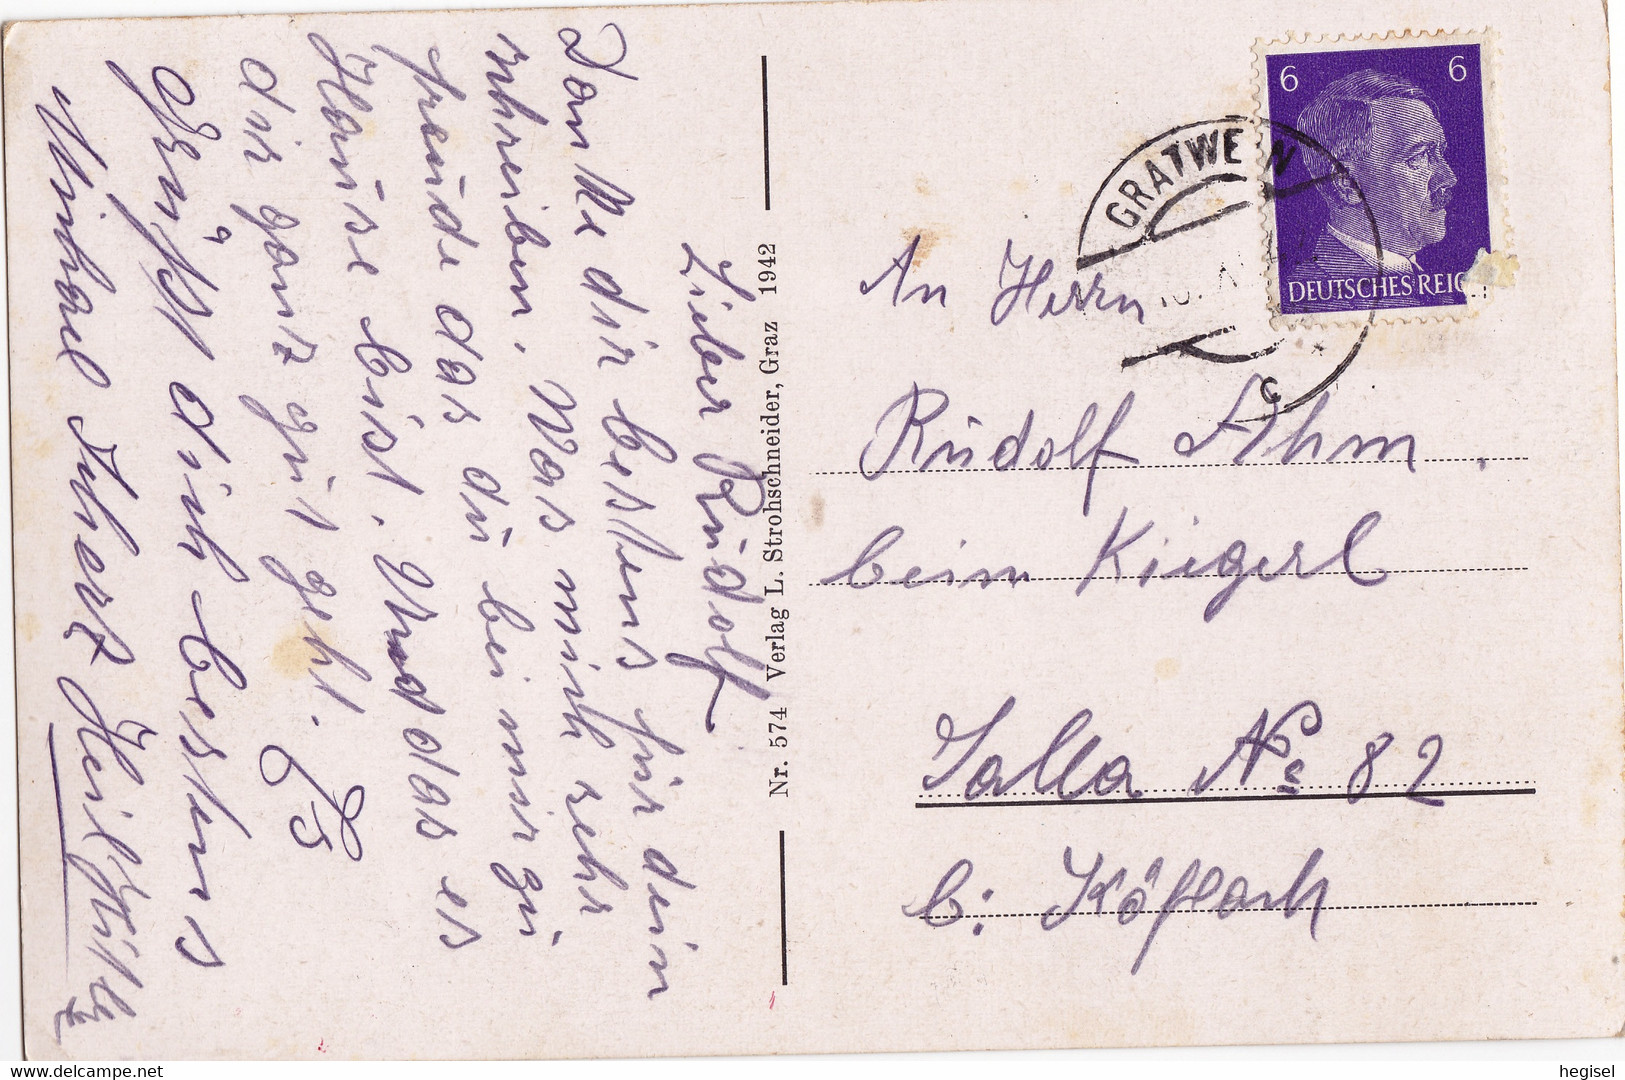 Lieber Rudolf
Danke dir bestens für dein
schreiben, Was mich sehr
freude das du bei mir zu
Hause bist. Und das es
dir ganz gut geht.
Grüsst dich bestens
Michael
Heil Hitler
Nr. 574 Verlag L. Strohschneider, Graz 1942
6 6
DEUTSCHES REIC
GRATWEIN
c
An Herrn
Rudolf Ahm.
beim Kiegerl
Salla No 82
b: Köflach
hegisel